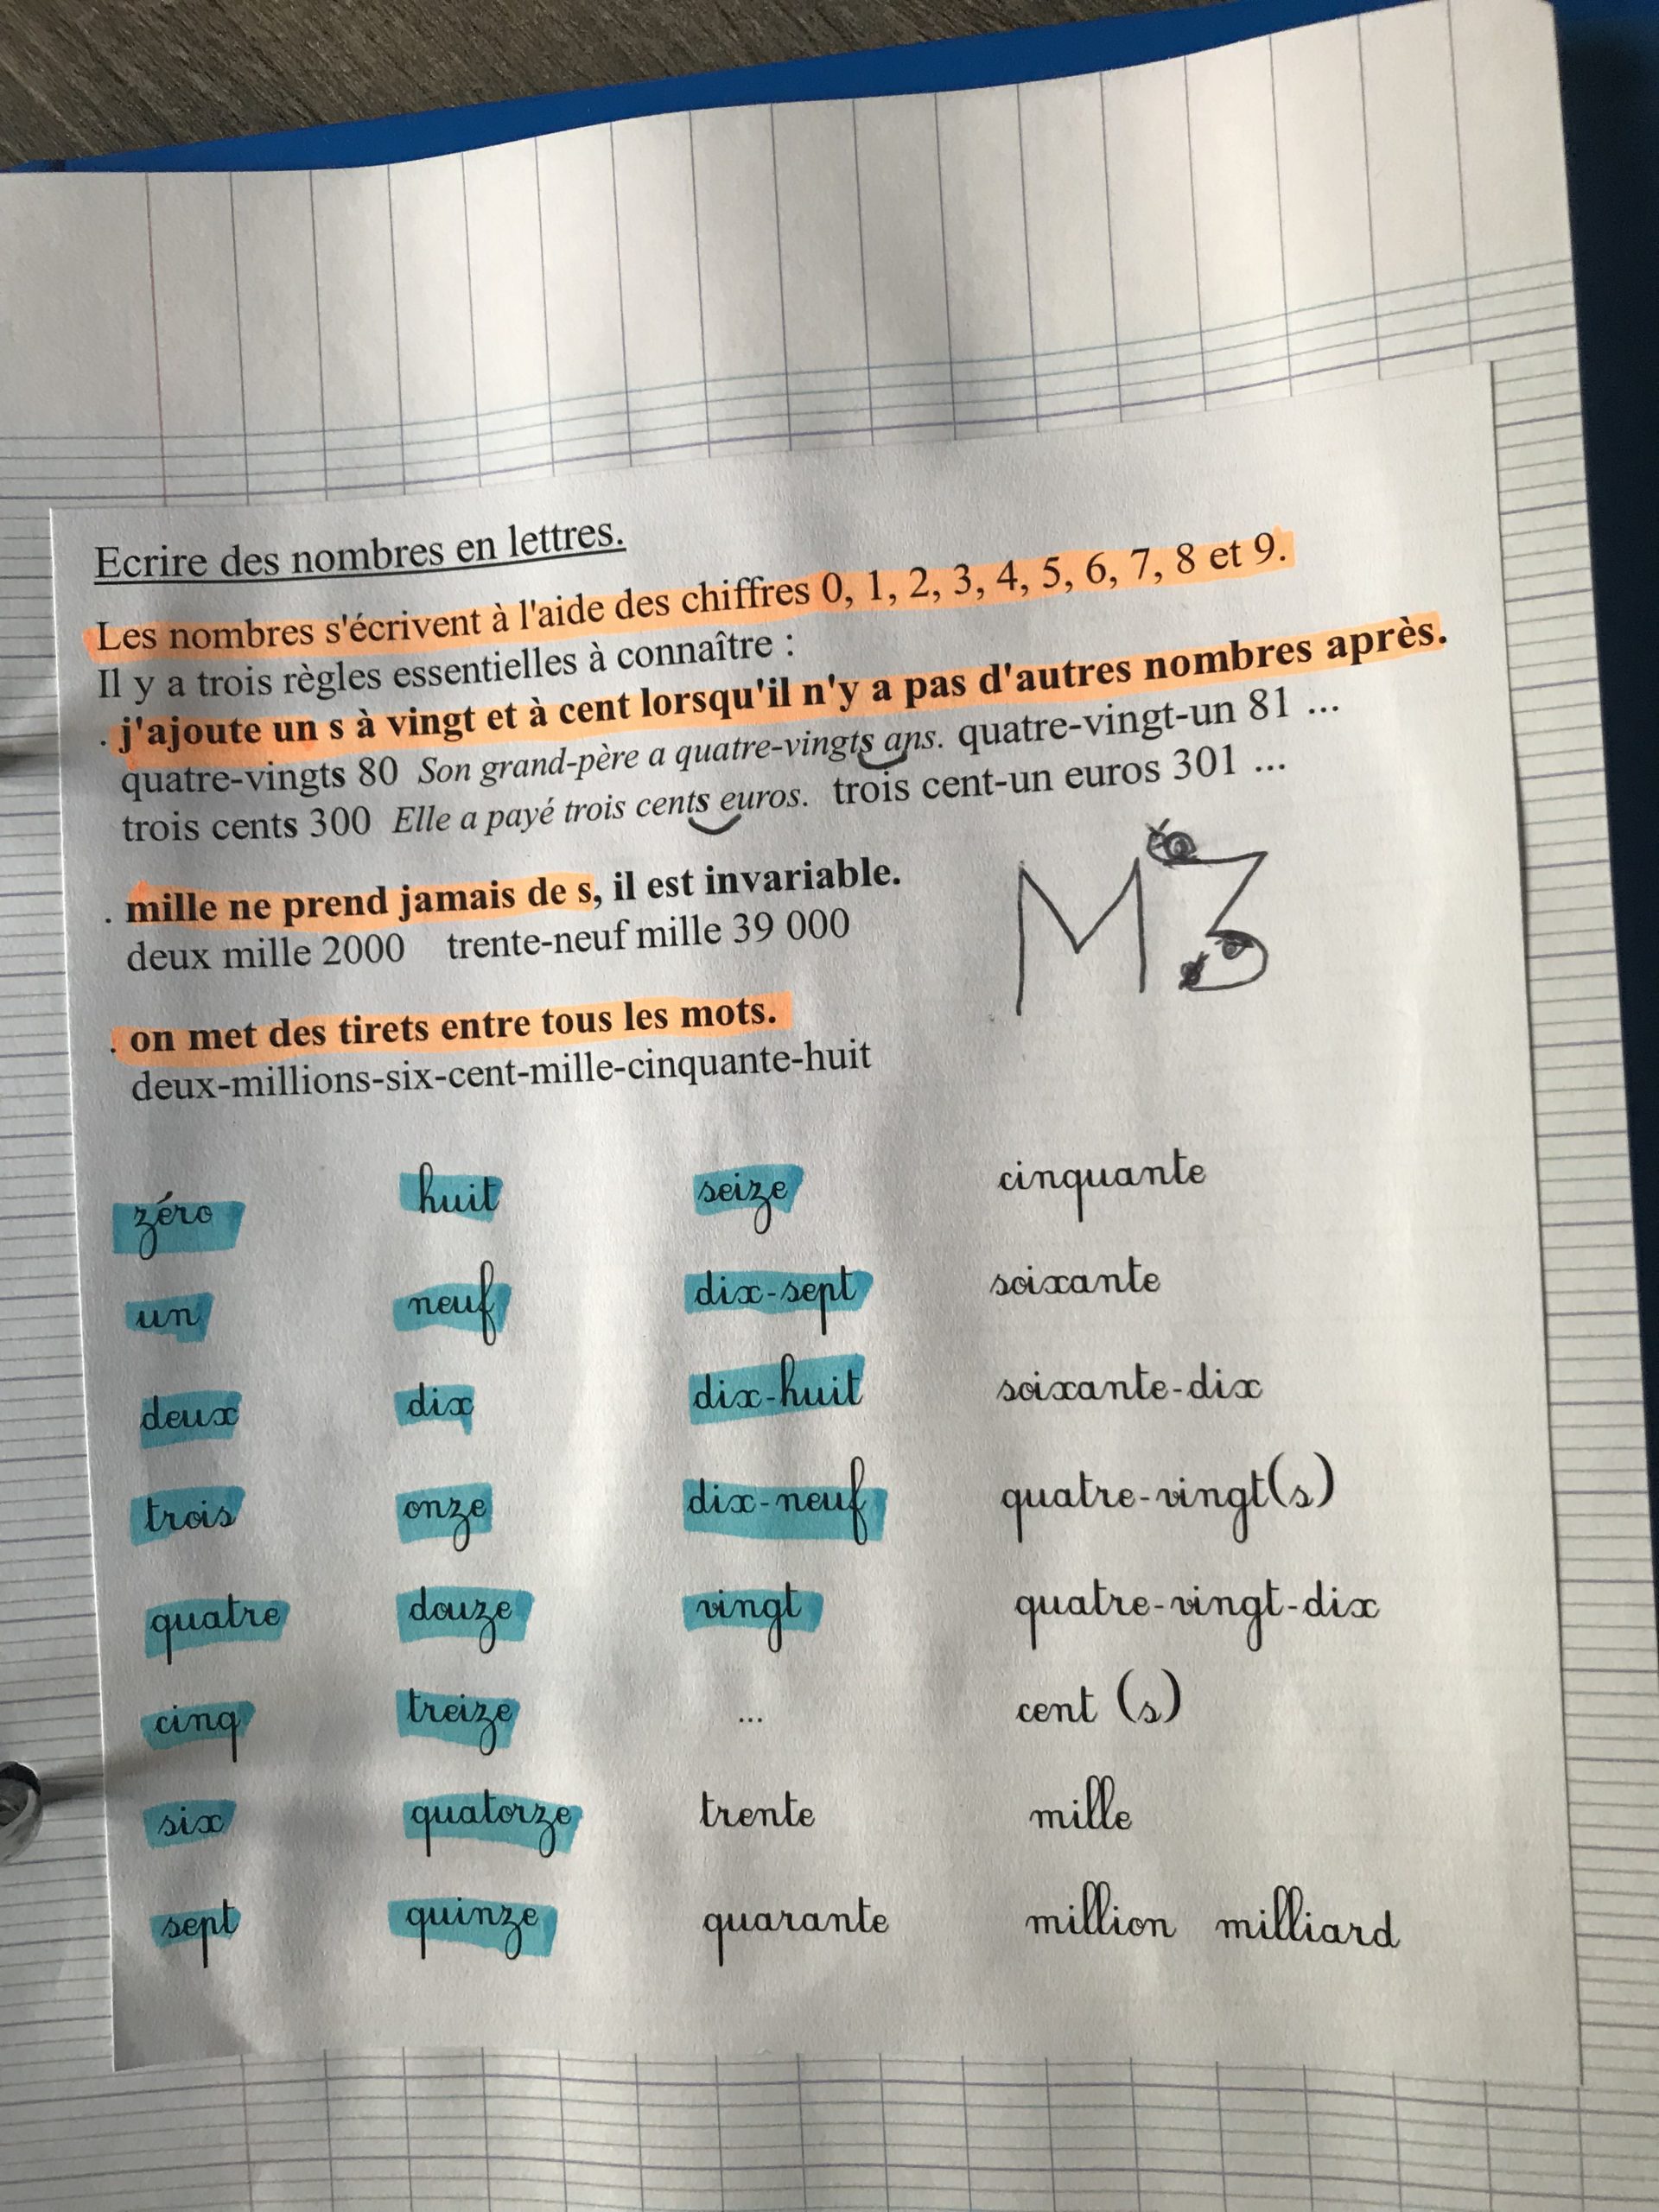 Ecrire des nombres en lettres.
Les nombres s'écrivent à l'aide des chiffres 0, 1, 2, 3, 4, 5, 6, 7, 8 et 9.
Il y a trois règles essentielles à connaître :
. j'ajoute un s à vingt et à cent lorsqu'il n'y a pas d'autres nombres après.
quatre-vingts 80 Son grand-père a quatre-vingts ans. quatre-vingt-un 81 ...
trois cents 300 Elle a payé trois cents euros. trois cent-un euros 301 ...
. mille ne prend jamais de s, il est invariable.
deux mille 2000 trente-neuf mille 39 000
M3
. on met des tirets entre tous les mots.
deux-millions-six-cent-mille-cinquante-huit
zéro huit seize cinquante
un neuf dix-sept soixante
deux dix dix-huit soixante-dix
trois onze dix-neuf quatre-vingt(s)
quatre douze vingt quatre-vingt-dix
cinq treize ... cent (s)
six quatorze trente mille
sept quinze quarante million milliard